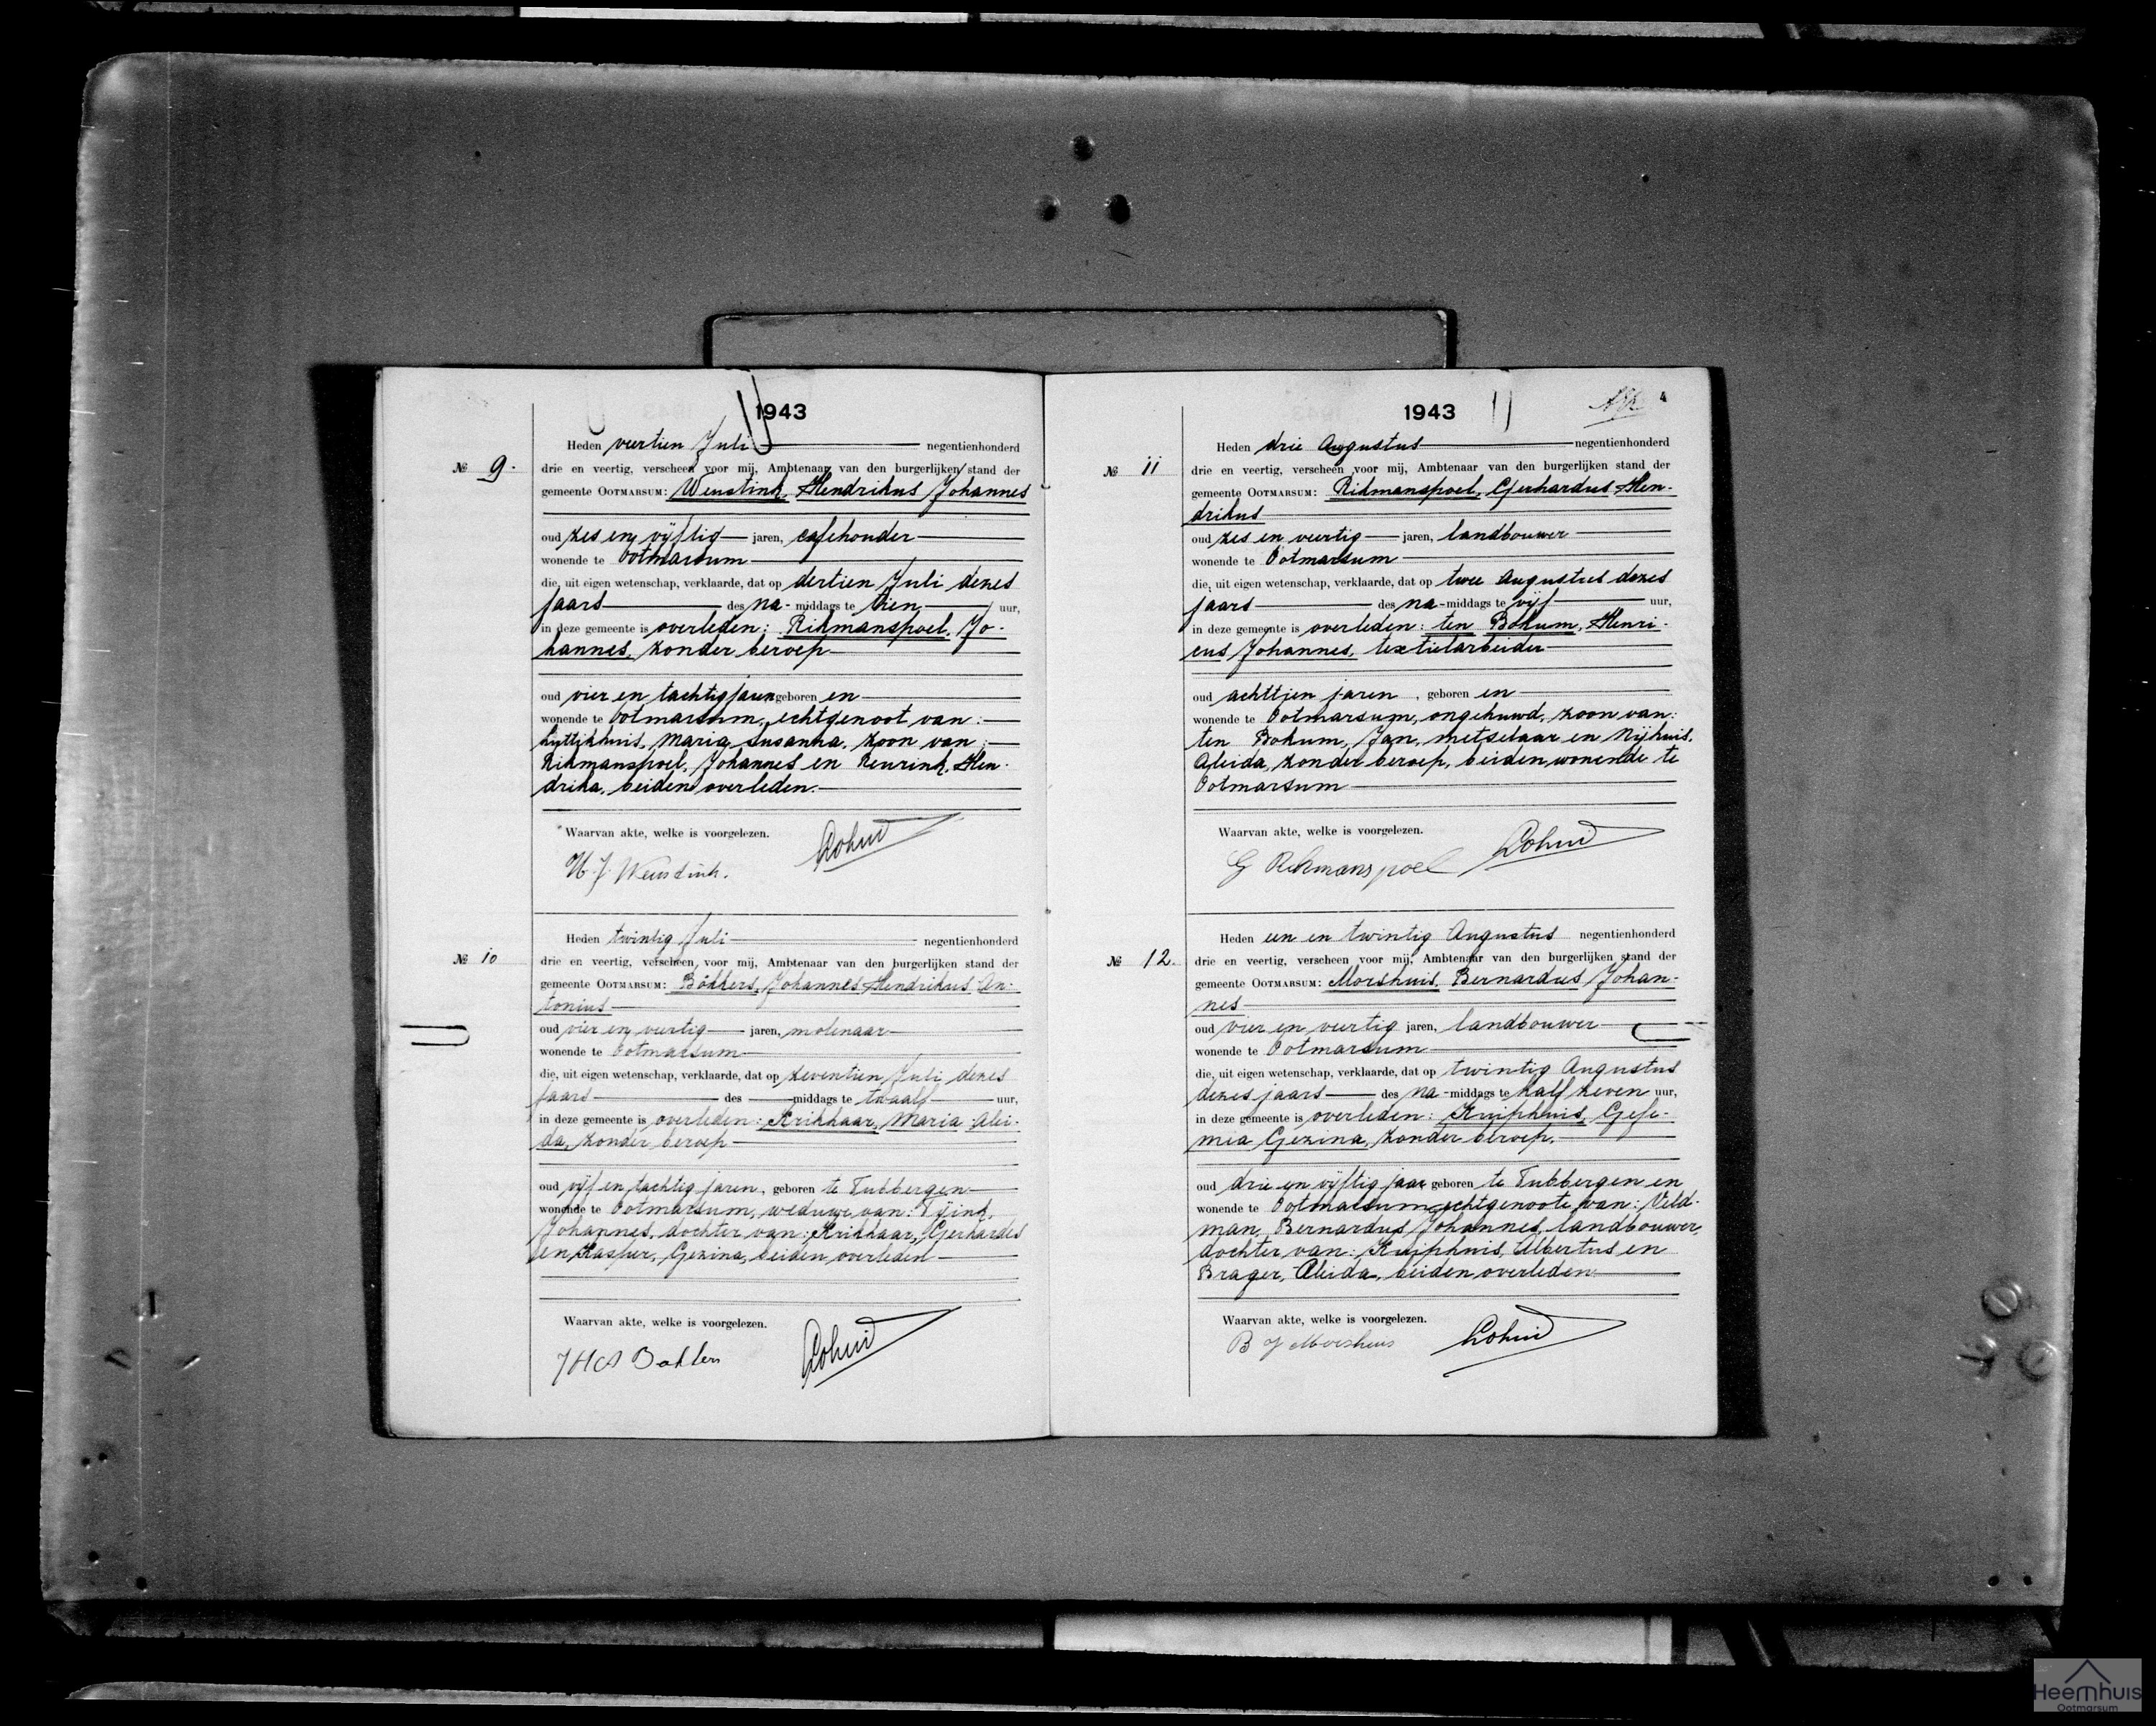 1943
Heden veertien Juli negentienhonderd
№ 9. drie en veertig, verscheen voor mij, Ambtenaar van den burgerlijken stand der
gemeente OOTMARSUM: Weustink, Hendrikus Johannes
oud zes en vijftig jaren, caféhouder
wonende te Ootmarsum
die, uit eigen wetenschap, verklaarde, dat op dertien Juli dezes
jaars des na-middags te tien uur,
in deze gemeente is overleden: Rikmanspoel, Jo-
hannes, zonder beroep
oud vier en tachtig jaren geboren en
wonende te Ootmarsum, echtgenoot van:
Luttikhuis, Maria Susanna, zoon van:
Rikmanspoel, Johannes en Reurink, Hen-
drika, beiden overleden.
Waarvan akte, welke is voorgelezen.
H. J. Weustink.
Heden twintig Juli negentienhonderd
№ 10 drie en veertig, verscheen voor mij, Ambtenaar van den burgerlijken stand der
gemeente OOTMARSUM: Bökkers, Johannes Hendrikus An-
tonius
oud vier en veertig jaren, molenaar
wonende te Ootmarsum
die, uit eigen wetenschap, verklaarde, dat op zeventien Juli dezes
jaars des middags te twaalf uur,
in deze gemeente is overleden: Krikhaar, Maria Alei-
da, zonder beroep
oud vijf en tachtig jaren, geboren te Tubbergen
wonende te Ootmarsum, weduwe van: Tijink,
Johannes, dochter van: Krikhaar, Gerhardes
en Kasper, Gezina, beiden overleden
Waarvan akte, welke is voorgelezen.
JHA Bökkers
4
1943
Heden drie Augustus negentienhonderd
№ 11 drie en veertig, verscheen voor mij, Ambtenaar van den burgerlijken stand der
gemeente OOTMARSUM: Rikmanspoel, Gerhardus Hen-
drikus
oud zes en veertig jaren, landbouwer
wonende te Ootmarsum
die, uit eigen wetenschap, verklaarde, dat op twee Augustus dezes
jaars des na-middags te vijf uur,
in deze gemeente is overleden: ten Bokum, Henri-
cus Johannes, textielarbeider
oud achttien jaren, geboren en
wonende te Ootmarsum, ongehuwd, zoon van:
ten Bokum, Jan, metselaar en Nijhuis,
Aleida, zonder beroep, beiden wonende te
Ootmarsum
Waarvan akte, welke is voorgelezen.
G Rikmanspoel
Heden een en twintig Augustus negentienhonderd
№ 12. drie en veertig, verscheen voor mij, Ambtenaar van den burgerlijken stand der
gemeente OOTMARSUM: Morshuis, Bernardus Johan-
nes
oud vier en veertig jaren, landbouwer
wonende te Ootmarsum
die, uit eigen wetenschap, verklaarde, dat op twintig Augustus
dezes jaars des na-middags te half zeven uur,
in deze gemeente is overleden: Kuiphuis, Gefe-
mia Gezina, zonder beroep.
oud drie en vijftig jaar geboren te Tubbergen en
wonende te Ootmarsum echtgenoote van: Veld-
man, Bernardus Johannes, landbouwer,
dochter van: Kuiphuis, Albertus en
Brager, Aleida, beiden overleden
Waarvan akte, welke is voorgelezen.
B J Morshuis
Heemhuis
Ootmarsum